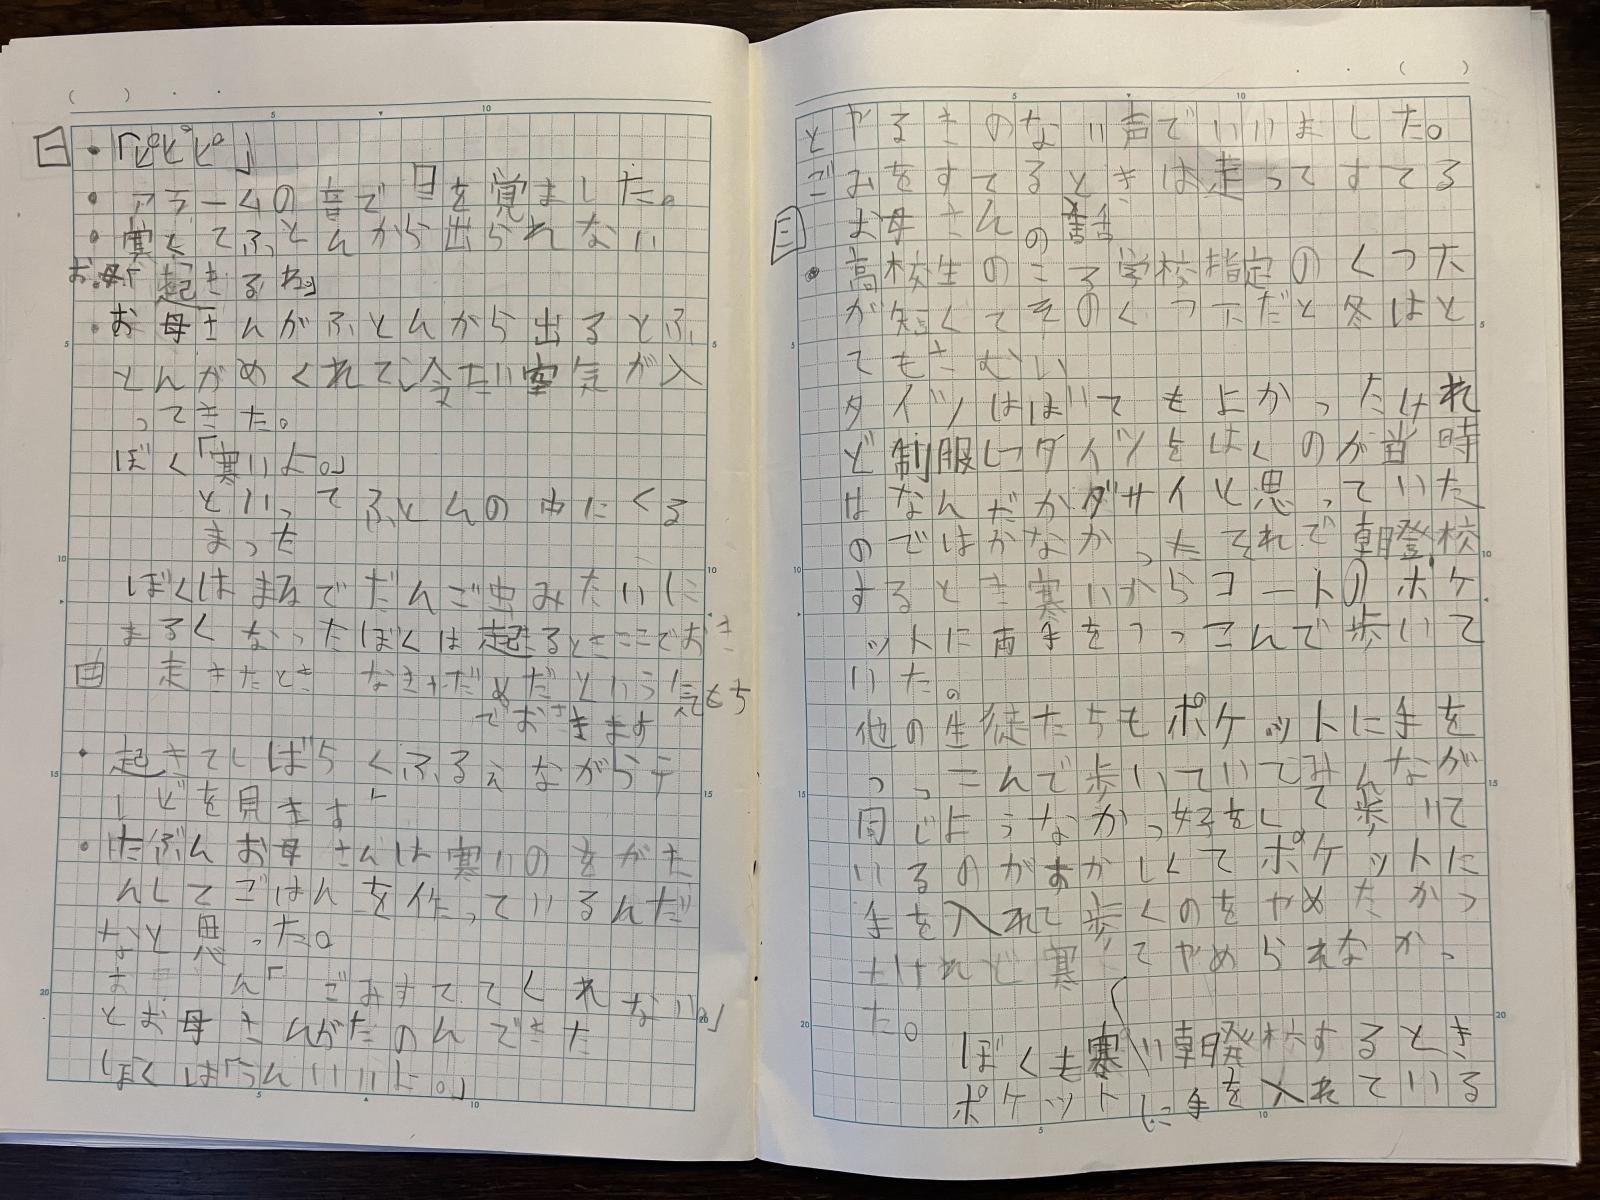 ( )
5
10
一
・「ピピピ」
・アラームの音で目を覚ました。
・寒くてふとんから出られない
お母「起きるね」
・お母さんがふとんから出るとふ
とんがめくれて冷たい空気が入
ってきた。
ぼく「寒いよ。」
といってふとんの中にくる
まった
ぼくはまるでだんご虫みたいに
まるくなったぼくは起るとき
という気もち
でおきます
・起きてしばらくふるえながらテ
レビを見ます
・たぶんお母さんは寒いのをがま
んしてごはんを作っているんだ
なと思った。
ん「ごみすててくれない。」
とお母さんがたのんできた
ぼくは「うんいいよ。」
5
10
5
10
15
20
( )
5
10
とやるきのない声でいいました。
ごみをすてるときは走ってすてる
三
お母さんの話
・高校生のころ学校指定のくつた
が短くてそのくつ下だと冬はと
てもさむい
タイツははいてもよかったけれ
ど制服にタイツをはくのが当時
はなんだかダサイと思っていた
のではかなかったそれで朝登校
するとき寒いからコートのポケ
ットに両手をつっこんで歩いて
いた。
他の生徒たちもポケットに手を
つっこんで歩いていてみんなが
同じようなかっ好をして歩いて
いるのがおかしくてポケットに
手を入れて歩くのをやめたかっ
たけれど寒くてやめられなかっ
た。
ぼくも寒い朝登校するとき
ポケットに手を入れている
5
10
15
20
5
10